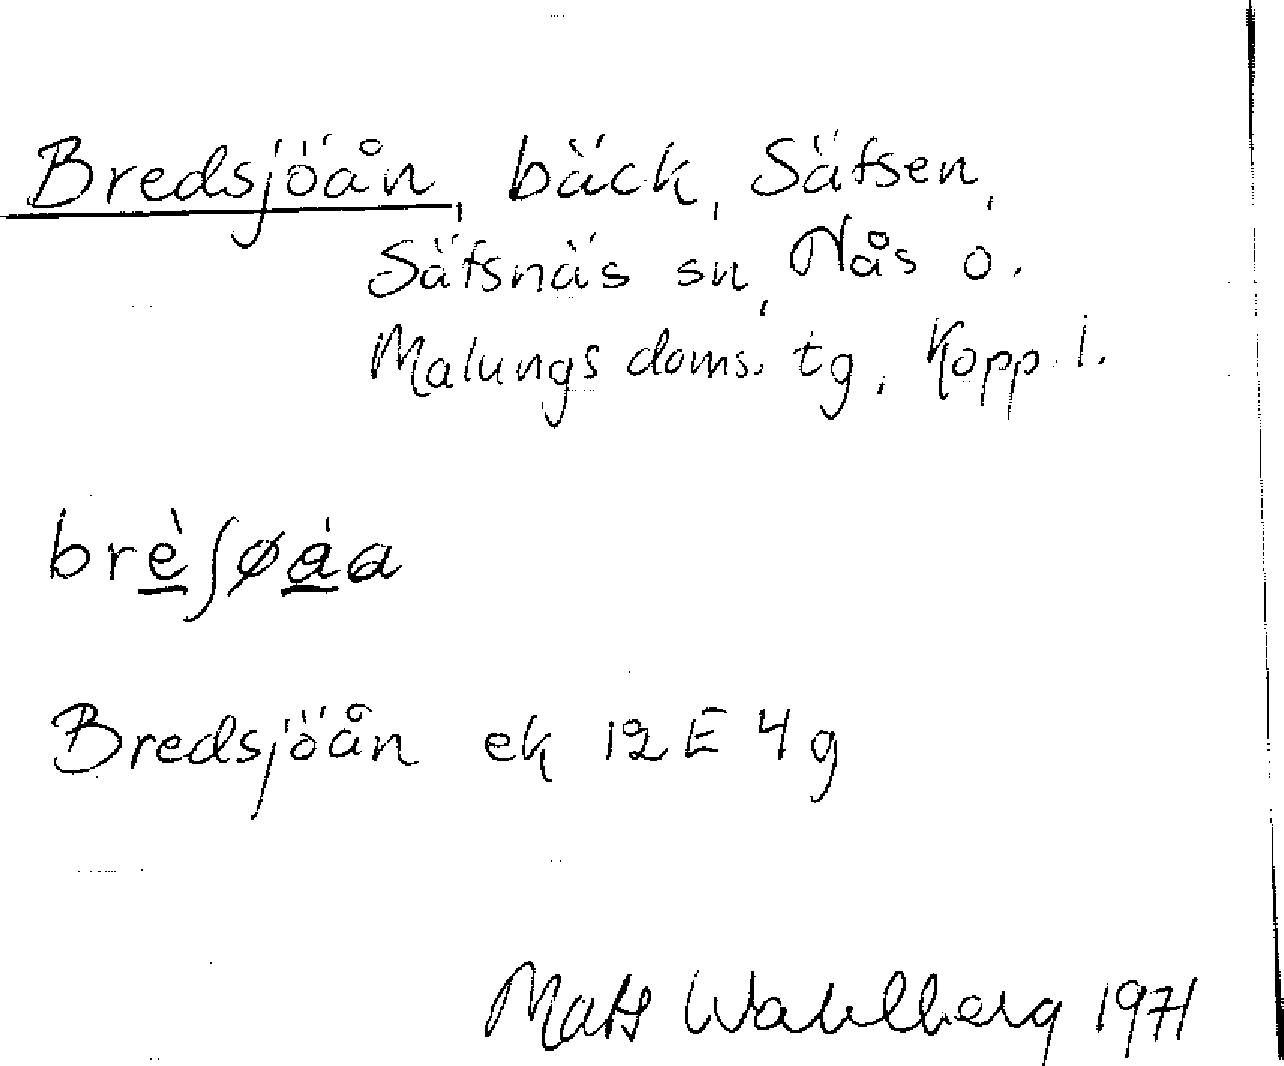 Bredsjöån, bäck, Säfsen,
Säfsnäs sn, Nås o.
Malungs doms. tg, Kopp. l.
brè̲ʃøá̲a
Bredsjöån ek 12E 4g
Mats Wahlberg 1971